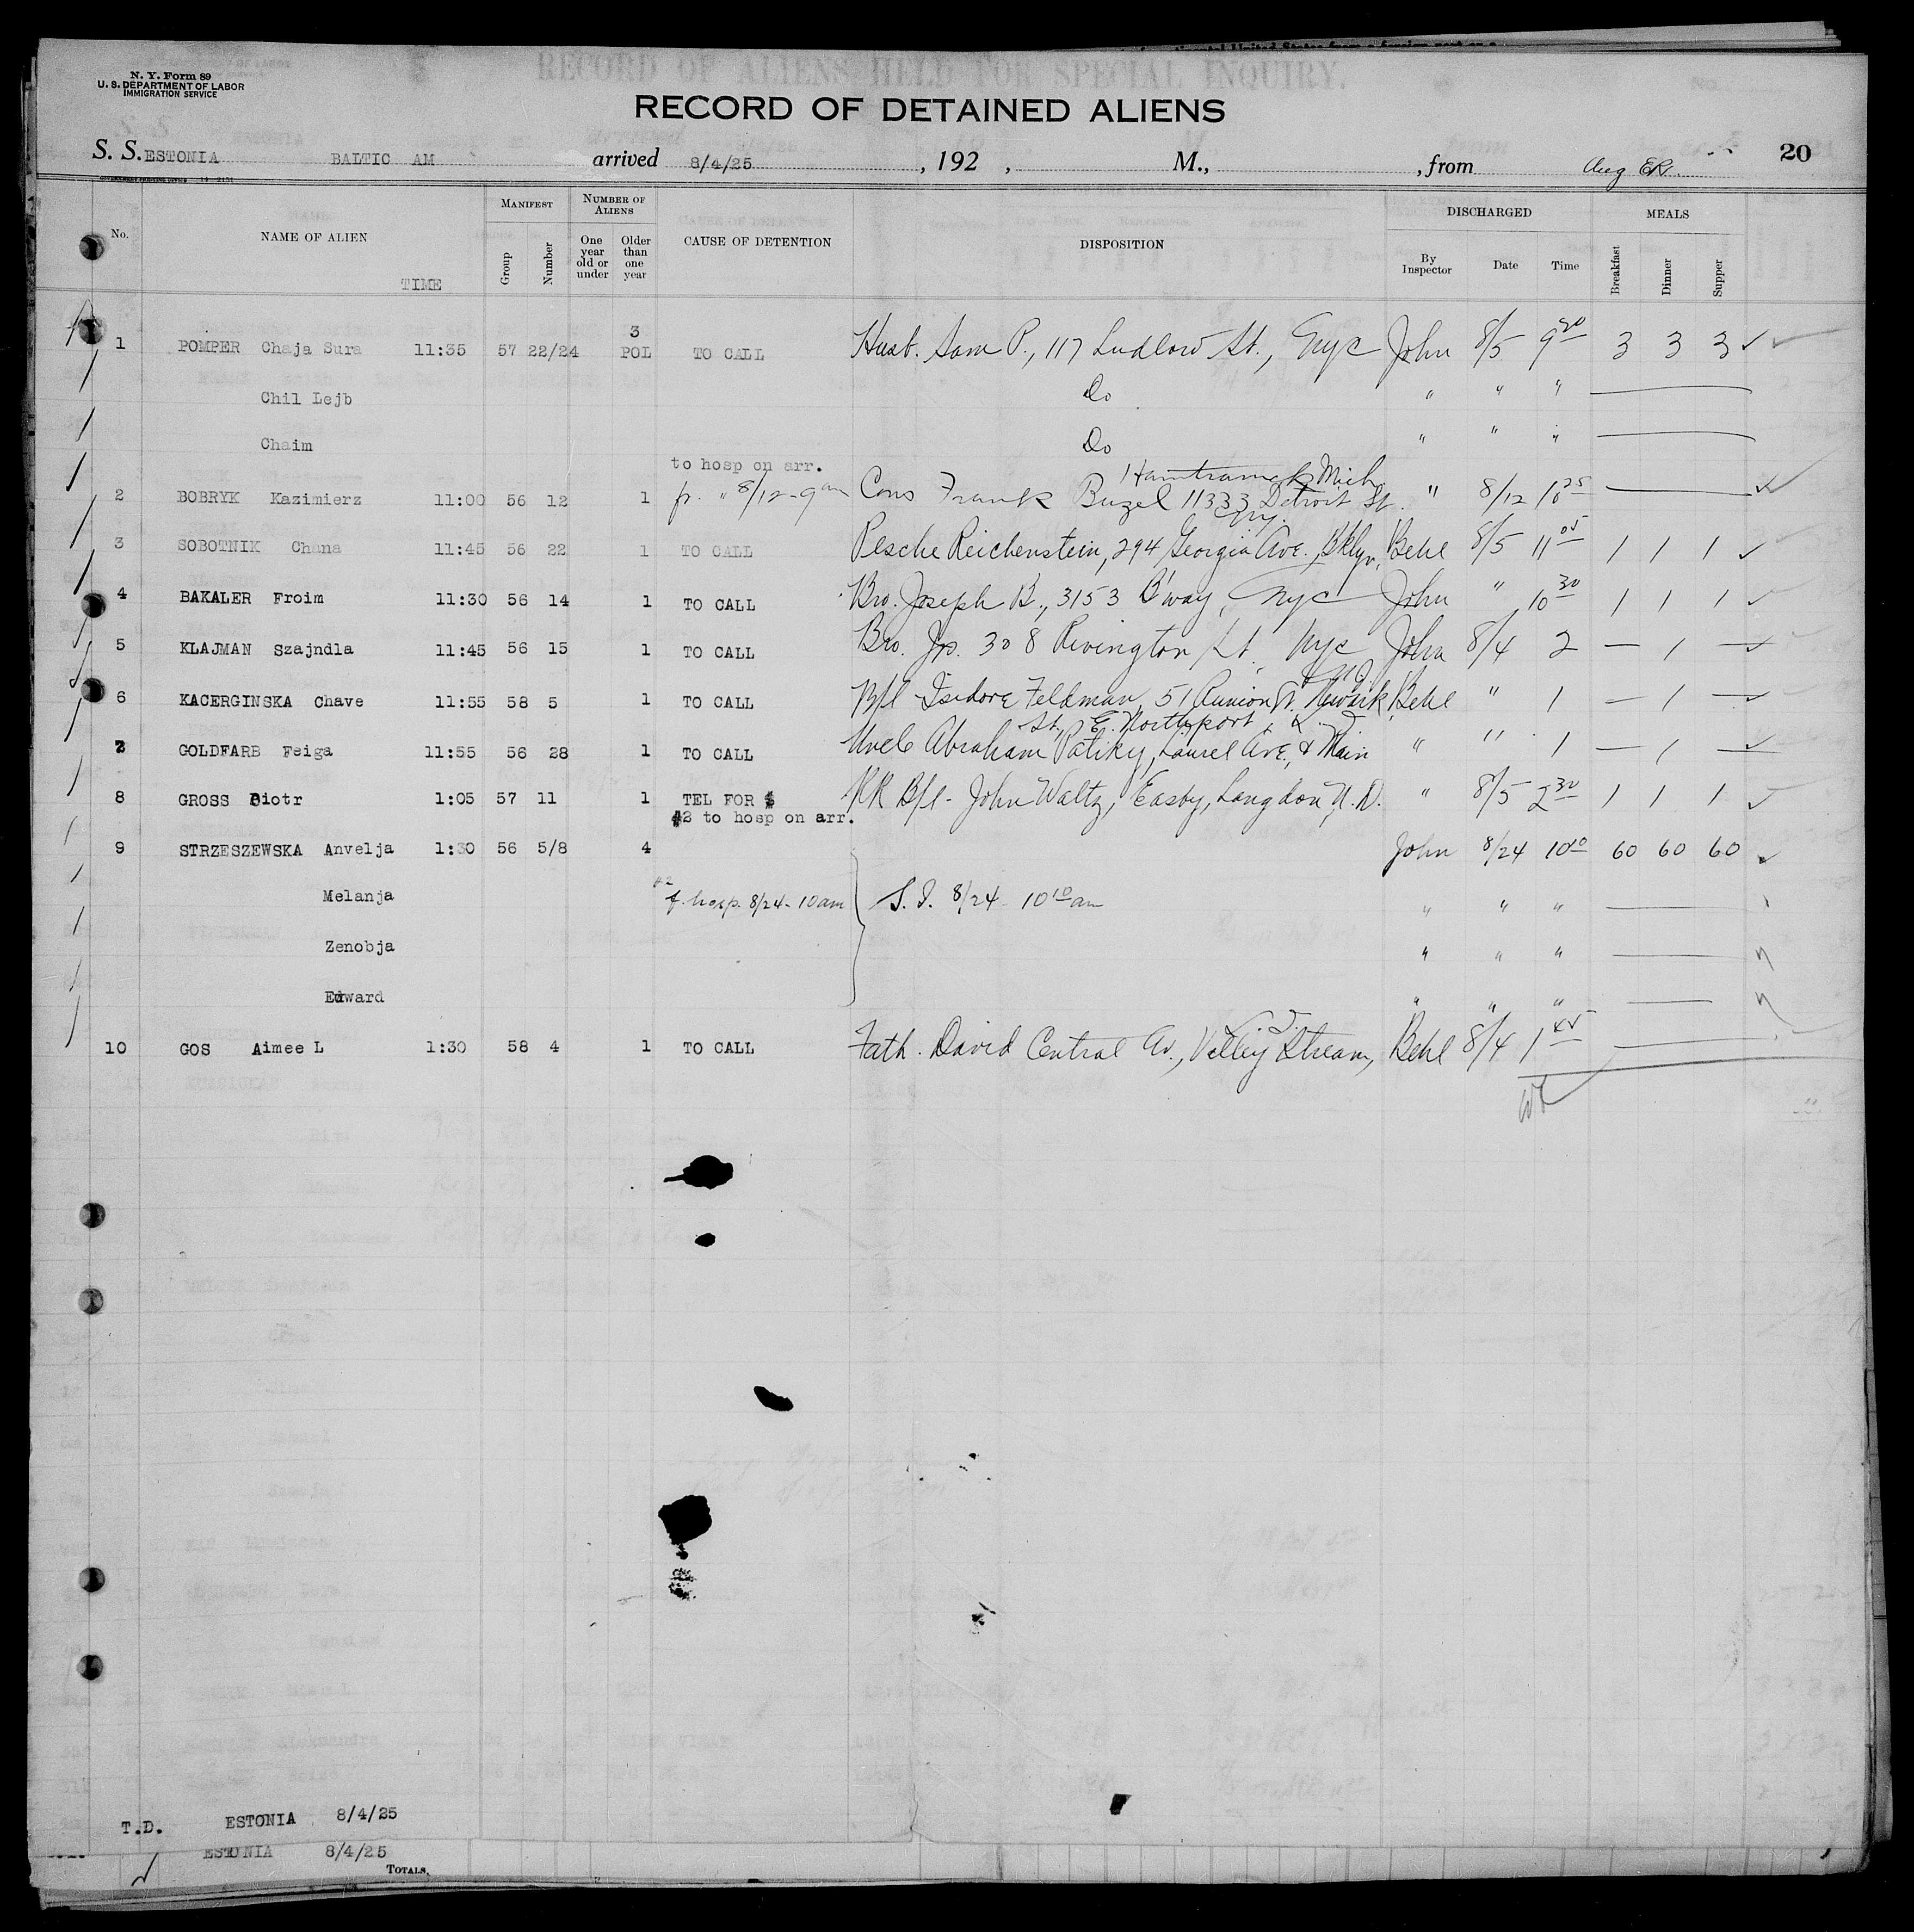 N. Y. Form 89
U. S. DEPARTMENT OF LABOR
IMMIGRATION SERVICE
RECORD OF ALIENS HELD FOR SPECIAL INQUIRY.
RECORD OF DETAINED ALIENS
S. S. ESTONIA BALTIC AM arrived 8/4/25, 192 , M., , from Aug 20
No. NAME OF ALIEN TIME MANIFEST Group Number NUMBER OF ALIENS One year old or under Older than one year CAUSE OF DETENTION DISPOSITION DISCHARGED By Inspector Date Time MEALS Breakfast Dinner Supper
3
1 POMPER Chaja Sura 11:35 57 22/24 POL TO CALL Husb. Sam P., 117 Ludlow St., Nyc John 8/5 9 20 3 3 3
Chil Lejb Do " " "
Chaim Do " " "
to hosp on arr. Hamtramck Mich
2 BOBRYK Kazimierz 11:00 56 12 1 fr. " 8/12-9am Cous Frank Buzel 11333 Detroit St. " 8/12 10 25
3 SOBOTNIK Chana 11:45 56 22 1 TO CALL Pesche Reichenstein, 294 Georgia Ave., Bklyn, Behl 8/5 11 05 1 1 1
4 BAKALER Froim 11:30 56 14 1 TO CALL Bro. Joseph B., 3153 B'way, Nyc John " 10 30 1 1 1
5 KLAJMAN Szajndla 11:45 56 15 1 TO CALL Bro. Jos. 308 Rivington St. Nyc John 8/4 2 — 1 —
6 KACERGINSKA Chave 11:55 58 5 1 TO CALL B/l Isidore Feldman, 51 Newark, Behl " 1 — 1 —
St., E. Northport, L.I.
7 GOLDFARB Feiga 11:55 56 28 1 TO CALL Uncle Abraham Patiky, Laurel Ave., & Main " " 1 — 1 —
8 GROSS Piotr 1:05 57 11 1 TEL FOR $ RR B/l - John Waltz, Easby, Langdon, N. D. " 8/5 2 30 1 1 1
#2 to hosp on arr.
9 STRZESZEWSKA Anvelja 1:30 56 5/8 4 John 8/24 10 10 60 60 60
Melanja #2 f. hosp. 8/24 - 10 am S.I. 8/24 10 10 am " " "
Zenobja " " "
Edward " " "
L.I.
10 GOS Aimee L 1:30 58 4 1 TO CALL Fath. David Central Av., Valley Stream, Behl 8/4 1 45
T.D. ESTONIA 8/4/25
ESTONIA 8/4/25
TOTALS.